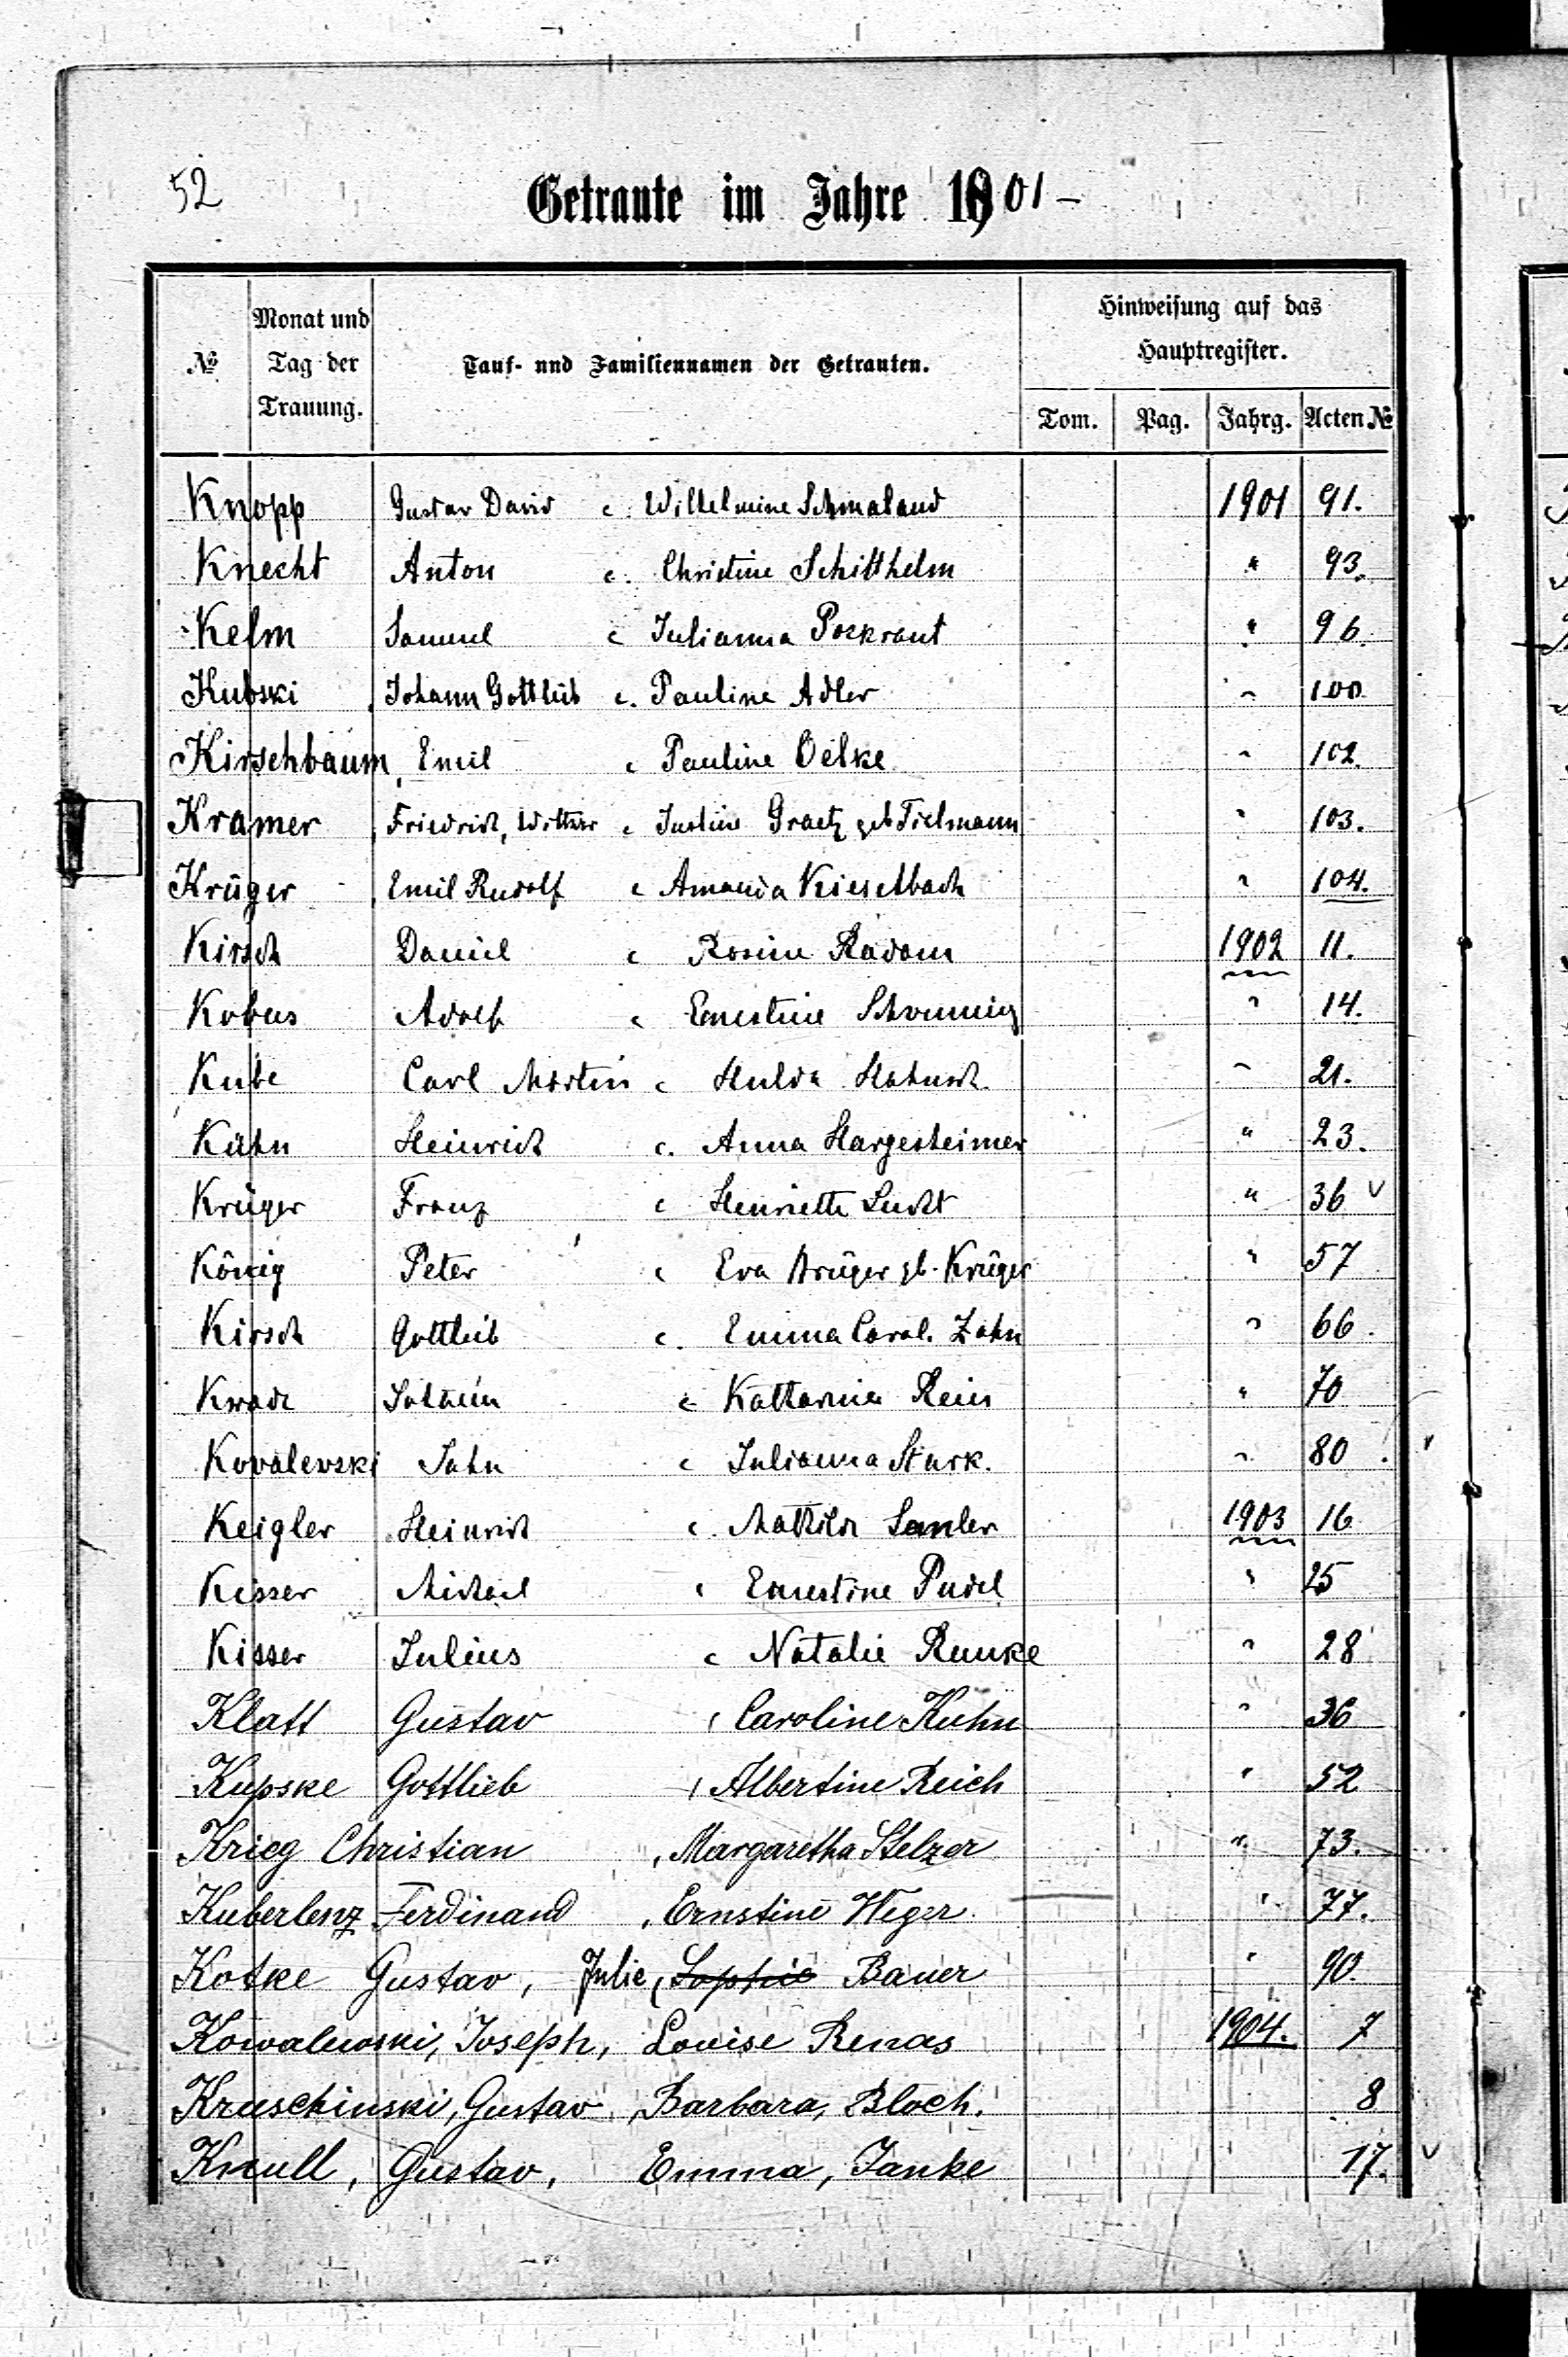 52
Getraute im Jahre 1901 –
№ Monat und Tag der Trauung. Tauf- und Familiennamen der Getrauten. Hinweisung auf das Hauptregister.
Tom. Pag. Jahrg. Acten №
Knopp Gustav David c. Wilhelmine Schmaland 1901 91.
Knecht Anton c. Christine Schitthelm " 93.
Kelm Samuel c Julianna Pockrant " 96.
Kubski Johann Gottlieb c. Pauline Adler " 100.
Kirschbaum, Emil c Pauline Oelke " 102.
Kramer Friedrich, Wittwer c Justine Graetz geb Tielmann " 103.
Krüger Emil Rudolf c Amanda Kieselbach " 104.
Kirsch Daniel c Rosine Radom 1902 11.
Kobus Adolf c Ernestine " 14.
Kube Carl Martin c Hulda Hahnsch " 21.
Kühn Heinrich c. Anna Hargesheimer " 23.
Krüger Franz c Henriette Lucht " 36 v
König Peter c Eva Krüger gb. Krüger " 57
Kirsch Gottlieb c. Emma Carol. Zahn " 66.
Johann c Katharina " 70
Kovalevski Jahn c Julianna Stark. " 80.
Keigler Heinrich c. Mathilde 1903 16
Kisser Michael c Ernestine Pudel " 25
Kisser Julius c Natalie Runke " 28
Klatt Gustav , Caroline Kuhn " 36
Kupske Gottlieb , Albertine Reich " 52
Krieg Christian , Margaretha Stelzer " 73.
Kuberlenz Ferdinand , Ernstine Weger " 77.
Kotke Gustav, Julie, Sophie Bauer " 90.
Kowalewski, Joseph, Louise Renas 1904. 7
Kruschinski, Gustav, Barbara, Bloch. 8
Knull, Gustav, Emma, Janke 17. v